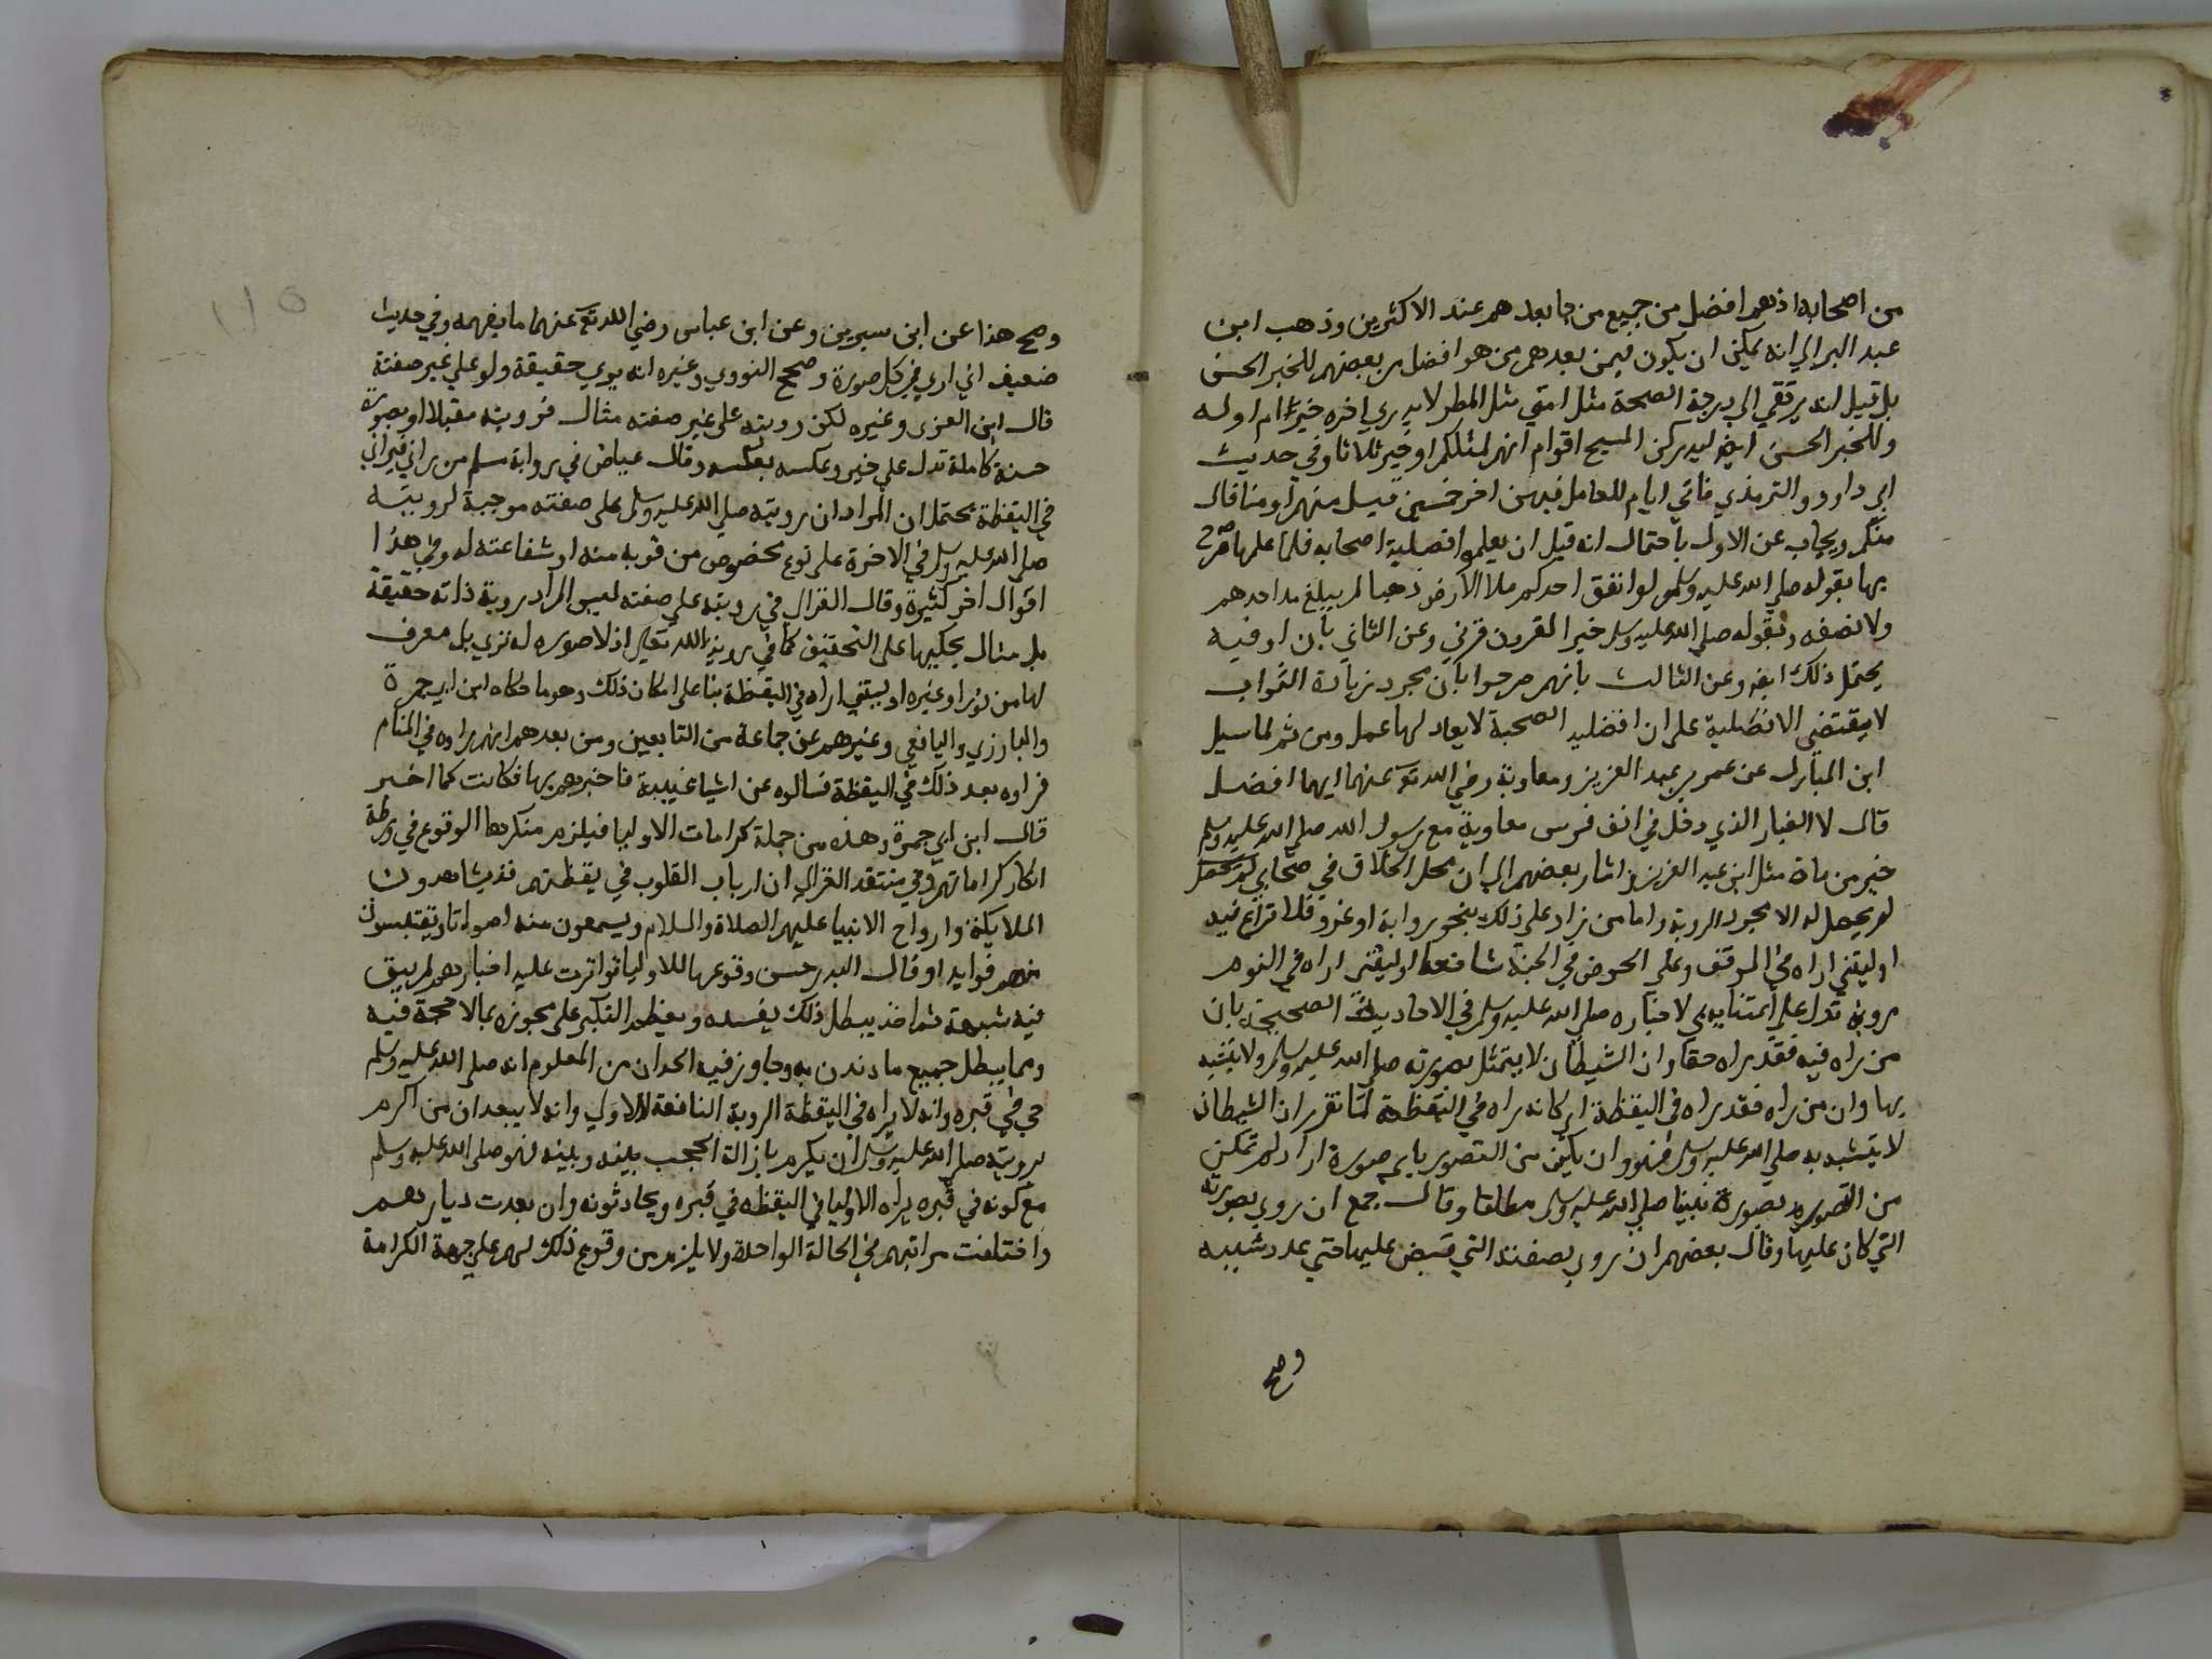 من اصحابه اذ هم افضل من جميع من ما بعدهم عند الاكثرين وذهب ابن
عبد البر الي انه يمكن ان يكون فيمن بعدهم من هو افضل من بعضهم للخبر الحسن
بل قيل انه يرتقي الي درجة الصحة مثل امتي مثل المطر لا يدري اخره خير ام اوله
وللخبر الحسن ايضا ليدركن المسيح اقوام انهم لمثلكم او خير ثلاثا وفي حديث
ابي داود والترمذي تاتي ايام للعامل فيهن اجر خمسين قيل منهم او منا قال
منكم ويجاب عن الاول باحتمال انه قيل ان يعلم افضلية اصحابه فلما علمها صرح
بها بقوله صلي الله عليه وسلم لو انفق احدكم ملا الارض ذهبا لم يبلغ مد احدهم
ولا نصفه وبقوله صلي الله عليه وسلم خير القرون قرني وعن الثاني بان او فيه
يحتمل ذلك ايضا وعن الثالث بانهم صرحوا بان مجرد زيادة الثواب
لا يقتضي الافضلية علي ان افضلية الصحبة لا يعادلها عمل ومن ثم لما سيل
ابن المبارك عن عمر بن عبد العزيز ومعاوية رضي الله تع عنهما ايهما افضل
قال لا الغبار الذي دخل في انف فرس معاوية مع رسول الله صلي الله عليه وسلم
خير من ماة مثل ابن عبد العزيز واشار بعضهم الي ان محل الخلاف في صحابي
لم يحصل له الا مجرد الروية واما من زاد علي ذلك بنحو رواية او غزو فلا نزاع فيه
او ليتني اراه في الموقف وعلي الحوض في الجنة شافعا او ليتني اراه في النوم
روية تدل علي لاخباره صلي الله عليه وسلم في الاحاديث الصحيحة بان
من راه فيه فقد راه حقا وان الشيطان لا يتمثل بصورته صلي الله عليه وسلم ولا يتشبه
بها وان من راه فقد راه في اليقظة اي كانه راه في اليقظة لما تقرر ان الشيطان
لا يتشبه به صلي الله عليه وسلم فهو وان يكن من التصور باي صورة اراد لم تمكن
من التصور بصورة نبينا صلي الله عليه وسلم مطلقا وقال جمع ان روي بصورته
التي كان عليها وقال بعضهم ان روي بصفته التي قبض عليها حتي عدد شيبه
وصح
وصح هذا عن ابن سيرين وعن ابن عباس رضي الله تع عنهما ما يفهمه وفي حديث
ضعيف اني اري في كل صورة وصحح النووي وغيره انه يري حقيقة ولو علي غير صفته
قال ابن العربي وغيره لكن رويته علي غير صفته مثال فرويته مقبلا او بصورة
حسنة كاملة تدل علي خير وعكسه بعكسه وقال عياض في رواية مسلم من راني فيراني
في اليقظة يحتمل ان المراد ان رويته صلي الله عليه وسلم علي صفته موجبة لرويته
صلي الله عليه وسلم في الاخرة علي نوع مخصوص من قربه منه او شفاعته له وفي هذا
اقوال اخر كثيرة وقال الغزالي في رويته علي صفته ليس المراد روية ذاته حقيقة
بل مثال يحكيها علي التحقيق كما في روية الله تعالي اذ لا صورة له تري بل معرف
لها من نور او غيره او ليتني اراه في اليقظة بنا علي امكان ذلك وهو ما حكاه ابن ابي جمرة
والبارزي واليافعي وغيرهم عن جماعة من التابعين ومن بعدهم انهم راوه في المنام
فراوه بعد ذلك في اليقظة فسالوه عن اشيا غيبية فاخبرهم بها فكانت كما اخبر
قال ابن ابي جمرة وهذه من جملة كرامات الاوليا فيلزم منكرها الوقوع في ورطة
انكار كراماتهم وفي منتقد الغزالي ان ارباب القلوب في يقظتهم قد يشاهدون
الملايكة وارواح الانبيا عليهم الصلاة والسلام ويسمعون منه اصواتا ويقتبسون
منهم فوايد او قال البدر حسن وقوعها للاوليا تواترت عليه اخبارهم لم يبق
فيه شبهة ثم اخذ يبطل ذلك يفسده ويغظم النكير علي مجوزه بما لا حجة فيه
ومما يبطل جميع ما دندن به وجاوز فيه الحد ان من المعلوم انه صلي الله عليه وسلم
حي في قبره وانه لا يراه في اليقظة الروية النافعة الا ولي وانه لا يبعد ان من اكرم
برويته صلي الله عليه وسلم ان يكرم بازالة الحجب بينه وبينه فهو صلي الله عليه وسلم
مع كونه في قبره يراه الاوليا في اليقظه في قبره ويحادثونه وان بعدت ديارهم
واختلفت مراتبهم في الحالة الواحدة ولا يلزم من وقوع ذلك لهم علي جهة الكرامة